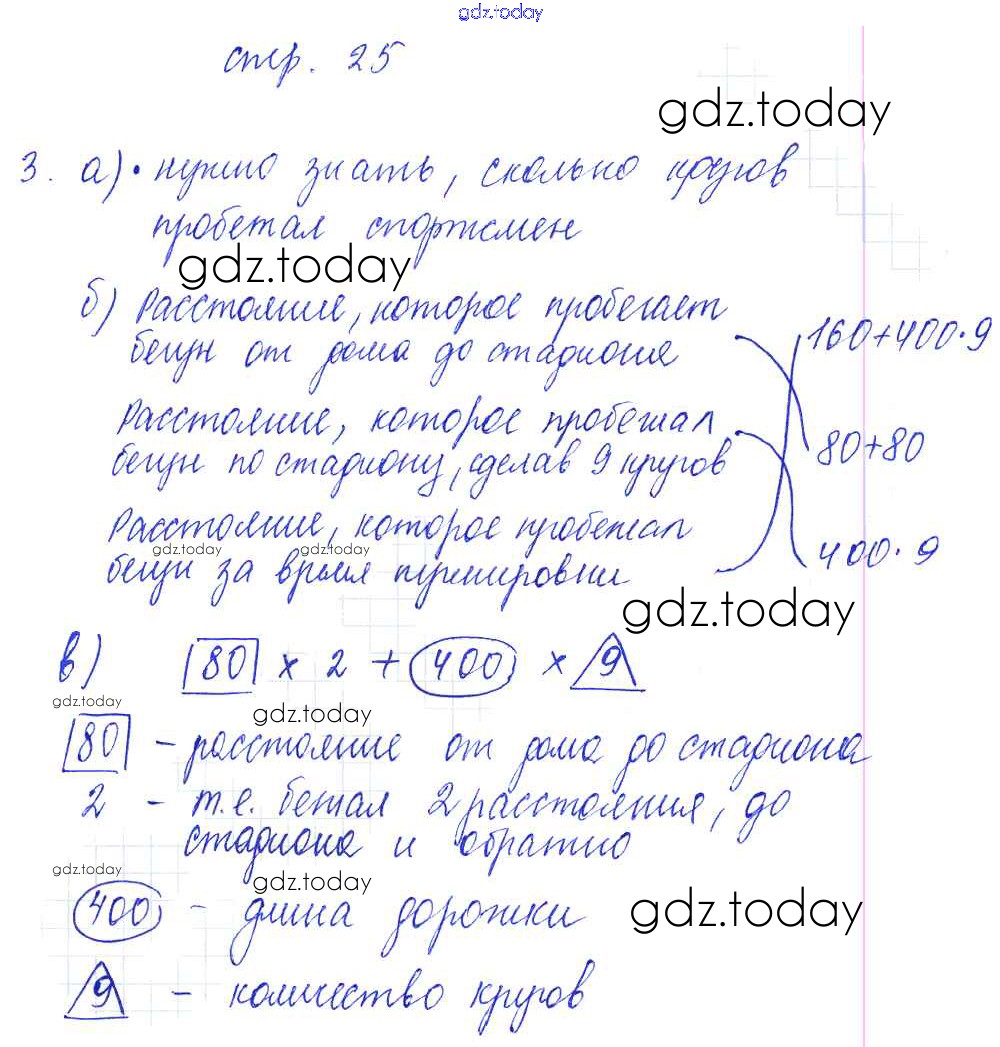 gdz.today
стр. 25
gdz.today
3. а) • нужно знать, сколько кругов
пробегал спортсмен
gdz.today
б) Расстояние, которое пробегает
бегун от дома до стадиона
160+400·9
Расстояние, которое пробежал
бегун по стадиону, сделав 9 кругов
80+80
Расстояние, которое пробежал
gdz.today gdz.today
бегун за время тренировки
400·9
gdz.today
в) 80 × 2 + 400 × 9
gdz.today
gdz.today
80 – расстояние от дома до стадиона
2 – т.е. бежал 2 расстояния, до
стадиона и обратно
gdz.today
gdz.today
400 – длина дорожки
gdz.today
9 – количество кругов